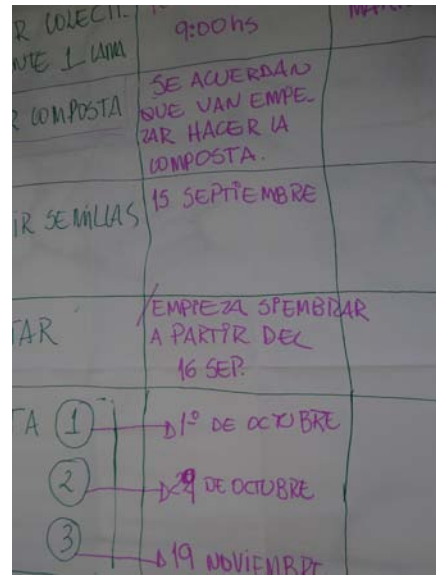 R COLECTI.
NTE 1 LUNA
9:00 hs
R COMPOSTA
SE ACUERDAN
QUE VAN EMPE-
ZAR HACER LA
COMPOSTA.
IR SEMILLAS
15 SEPTIEMBRE
TAR
EMPIEZA SIEMBRAR
A PARTIR DEL
16 SEP.
TA 1
1º DE OCTUBRE
2
29 DE OCTUBRE
3
19 NOVIEMBRE